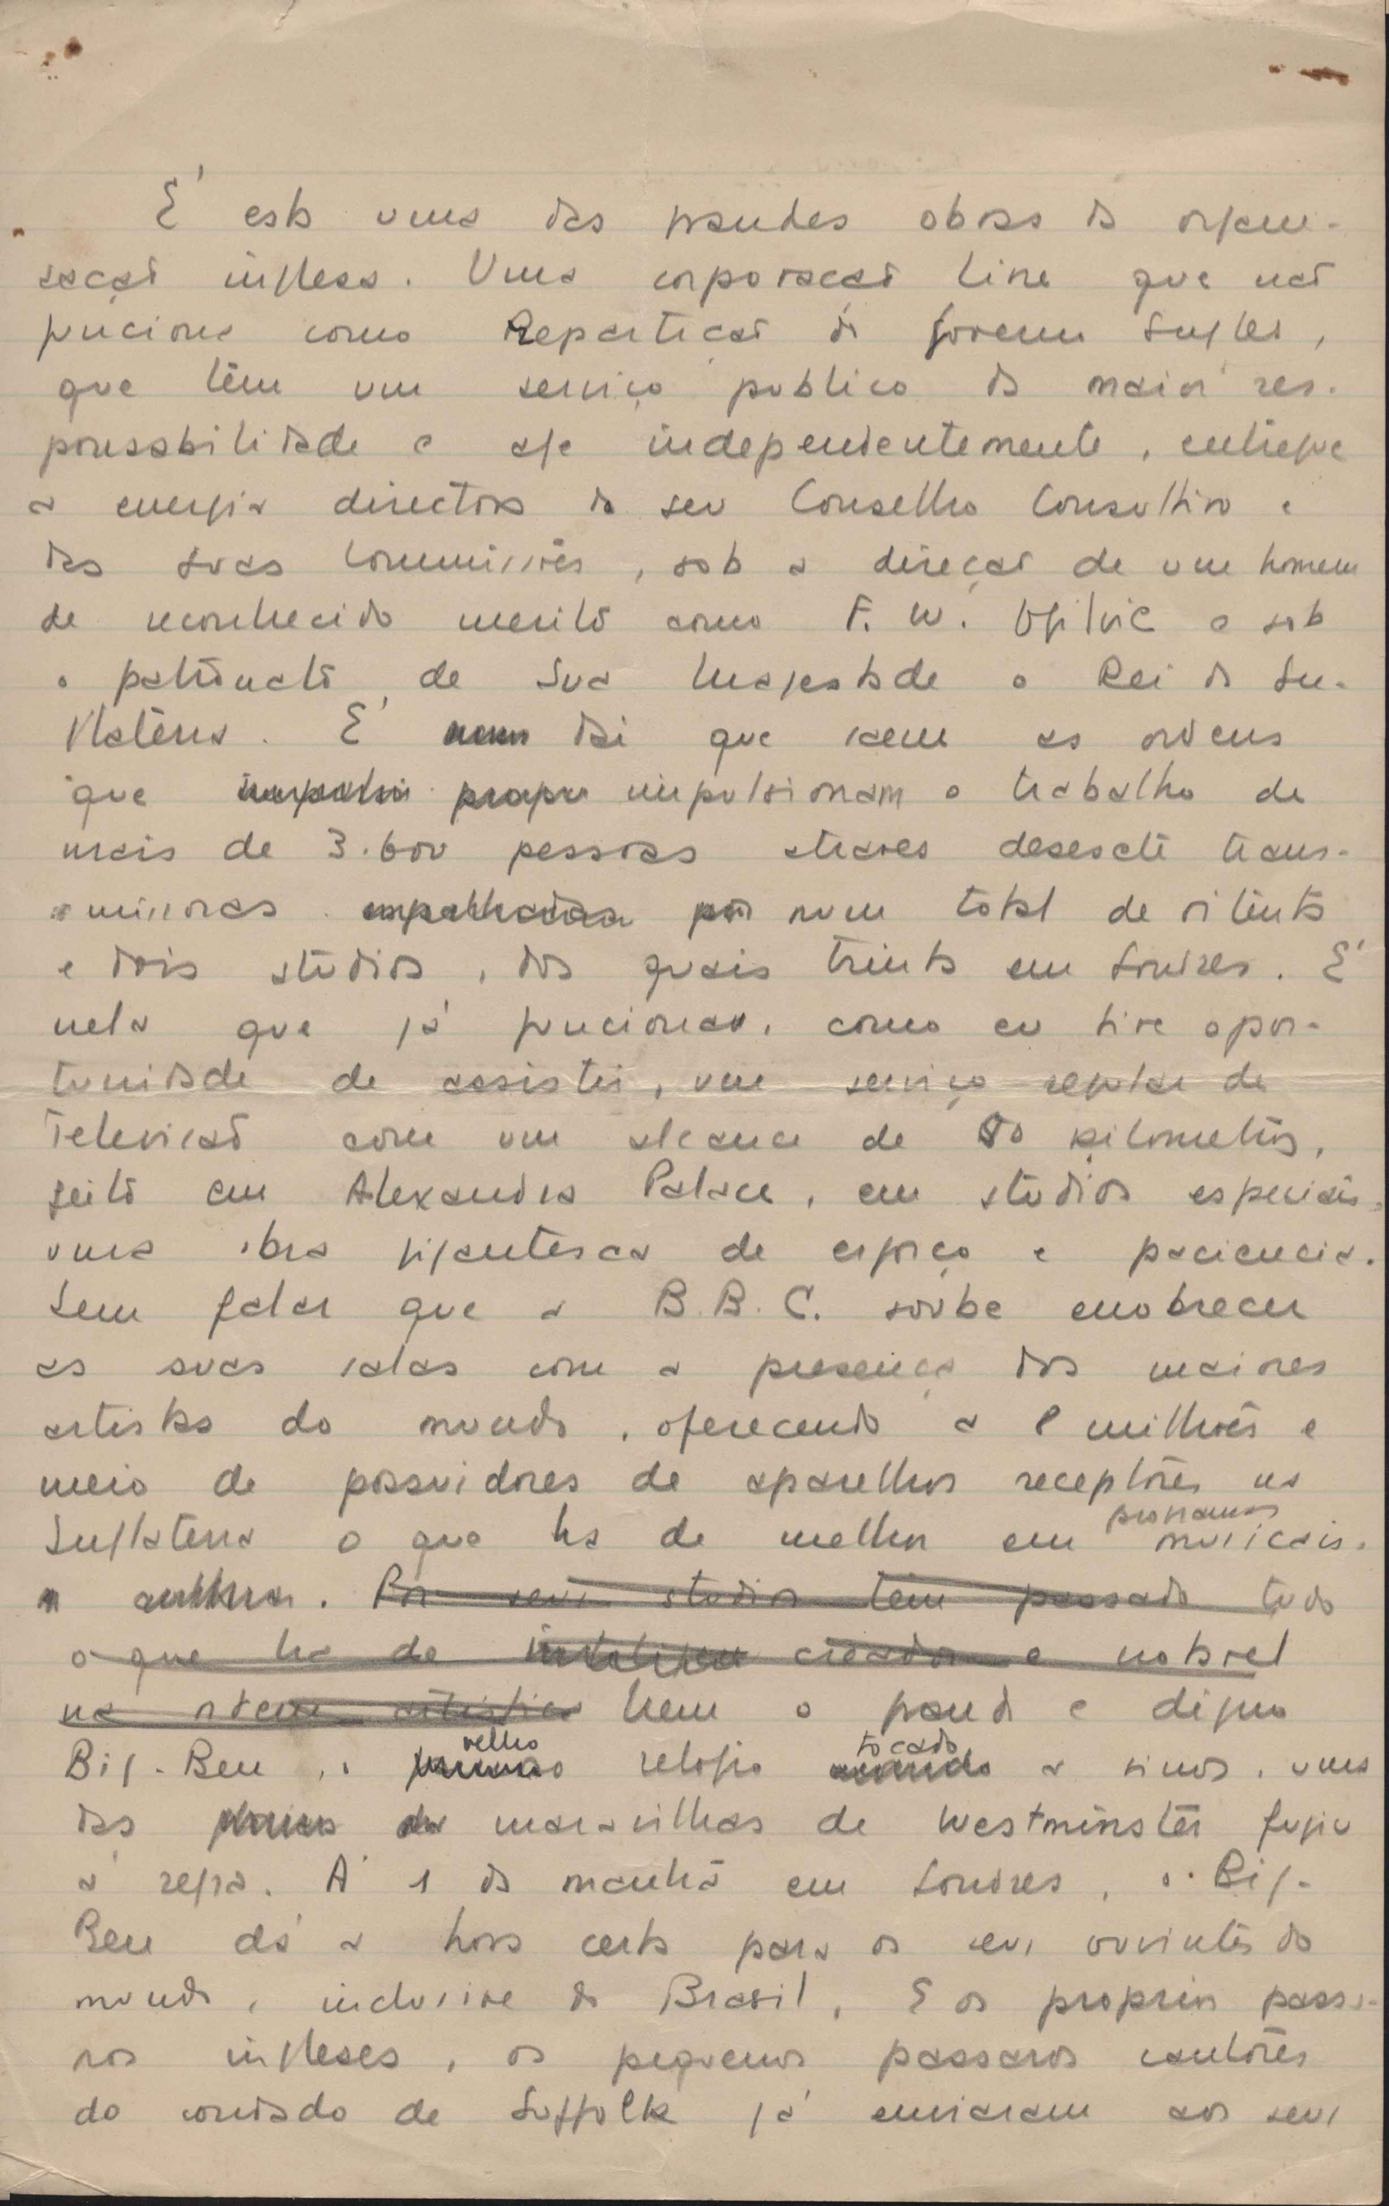 É esta uma das grandes obras da organi-
sação inglesa. Uma corporação livre que não
funciona como Repartição do governo Inglês,
que têm um serviço publico da maior res-
ponsabilidade e age independentemente, entregue
a energia directora do seu Conselho Consultivo e
das suas Commissões, sob a direção de um homem
de reconhecido merito como F. W. Ogilvie e sob
o patronato de Sua Magestade o Rei da In-
glaterra. É dai que saem as ordens
que impulsionam o trabalho de
mais de 3.600 pessoas atraves desesete trans-
missoras num total de oitenta
e dois studios, dos quais trinta em Londres. É
nela que já funcionava, como eu tive opor-
tunidade de assistir, um serviço regular de
Televisão com um alcance de 80 kilometros,
feito em Alexandra Palace, em studios especiais,
uma obra gigantesca de esforço e paciencia.
Sem falar que a B.B.C. soube enobrecer
as suas salas com a presença dos maiores
artistas do mundo, oferecendo a 8 milhões e
meio de possuidores de aparelhos receptores na
Inglaterra o que ha de melhor em programas musicais.
Por seus studios têm passado tudo
o que ha de creador e notavel
na ordem artistica Nem o grande e digno
Big-Ben, o velho relogio tocado a sinos, uma
das maravilhas de Westminster fugiu
á regra. Á 1 da manhã em Londres, o Big-
Ben dá a hora certa para os seus ouvintes do
mundo, inclusive do Brasil. E os proprios passa-
ros ingleses, os pequenos passaros cantores
do condado de Suffolk já enviaram aos seus